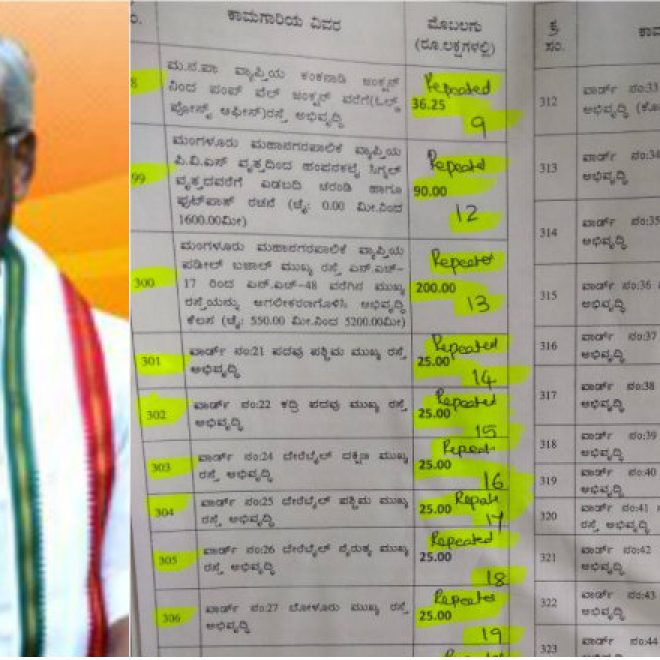 ಸಂ.
ಕಾಮಗಾರಿಯ ವಿವರ
ಮೊಬಲಗು
(ರೂ.ಲಕ್ಷಗಳಲ್ಲಿ)
8
ಮ.ನ.ಪಾ ವ್ಯಾಪ್ತಿಯ ಕಂಕನಾಡಿ ಜಂಕ್ಷನ್
ನಿಂದ ಪಂಪ್ ವೆಲ್ ಜಂಕ್ಷನ್ ವರೆಗೆ(ಓಲ್ಡ್
ಪೋಸ್ಟ್ ಆಫೀಸ್)ರಸ್ತೆ ಅಭಿವೃದ್ಧಿ
Repeated
36.25
9
99
ಮಂಗಳೂರು ಮಹಾನಗರಪಾಲಿಕೆ ವ್ಯಾಪ್ತಿಯ
ಪಿ.ವಿ.ಎಸ್ ವೃತ್ತದಿಂದ ಹಂಪನಕಟ್ಟೆ ಸಿಗ್ನಲ್
ವೃತ್ತದವರೆಗೆ ಎಡಬದಿ ಚರಂಡಿ ಹಾಗೂ
ಫುಟ್‌ಪಾತ್ ರಚನೆ (ಚೈ: 0.00 ಮೀ.ನಿಂದ
1600.00ಮೀ)
Repeated
90.00
12
300
ಮಂಗಳೂರು ಮಹಾನಗರಪಾಲಿಕೆ ವ್ಯಾಪ್ತಿಯ
ಪಡೀಲ್ ಬಜಾಲ್ ಮುಖ್ಯ ರಸ್ತೆ ಎನ್.ಎಚ್-
17 ರಿಂದ ಎನ್.ಎಚ್-48 ವರೆಗಿನ ಮುಖ್ಯ
ರಸ್ತೆಯನ್ನು ಅಗಲೀಕರಣಗೊಳಿಸಿ ಅಭಿವೃದ್ಧಿ
ಕೆಲಸ (ಚೈ: 550.00 ಮೀ.ನಿಂದ 5200.00ಮೀ)
Repeated
200.00
13
301
ವಾರ್ಡ್ ನಂ:21 ಪದವು ಪಶ್ಚಿಮ ಮುಖ್ಯ ರಸ್ತೆ
ಅಭಿವೃದ್ಧಿ
Repeated
25.00
14
302
ವಾರ್ಡ್ ನಂ:22 ಕದ್ರಿ ಪದವು ಮುಖ್ಯ ರಸ್ತೆ
ಅಭಿವೃದ್ಧಿ
Repeated
25.00
15
303
ವಾರ್ಡ್ ನಂ:24 ದೇರೆಬೈಲ್ ದಕ್ಷಿಣ ಮುಖ್ಯ
ರಸ್ತೆ ಅಭಿವೃದ್ಧಿ
25.00
16
304
ವಾರ್ಡ್ ನಂ:25 ದೇರೆಬೈಲ್ ಪಶ್ಚಿಮ ಮುಖ್ಯ
ರಸ್ತೆ ಅಭಿವೃದ್ಧಿ
25.00
17
305
ವಾರ್ಡ್ ನಂ:26 ದೇರೆಬೈಲ್ ನೈರುತ್ಯ ಮುಖ್ಯ
ರಸ್ತೆ ಅಭಿವೃದ್ಧಿ
Repeated
25.00
18
306
ವಾರ್ಡ್ ನಂ:27 ಬೋಳೂರು ಮುಖ್ಯ ರಸ್ತೆ
ಅಭಿವೃದ್ಧಿ
Repeated
25.00
19
ಕ್ರ
ಸಂ.
312
ವಾರ್ಡ್ ನಂ:33
ಅಭಿವೃದ್ಧಿ
313
ವಾರ್ಡ್ ನಂ:34
ಅಭಿವೃದ್ಧಿ
314
ವಾರ್ಡ್ ನಂ:35
ಅಭಿವೃದ್ಧಿ
315
ವಾರ್ಡ್ ನಂ:36
ಅಭಿವೃದ್ಧಿ
316
ವಾರ್ಡ್ ನಂ:37
ಅಭಿವೃದ್ಧಿ
317
ವಾರ್ಡ್ ನಂ:38
ಅಭಿವೃದ್ಧಿ
318
ವಾರ್ಡ್ ನಂ:39
ಅಭಿವೃದ್ಧಿ
319
ವಾರ್ಡ್ ನಂ:40
ಅಭಿವೃದ್ಧಿ
320
ವಾರ್ಡ್ ನಂ:41
ರಸ್ತೆ ಅಭಿವೃದ್ಧಿ
321
ವಾರ್ಡ್ ನಂ:42
ಅಭಿವೃದ್ಧಿ
322
ವಾರ್ಡ್ ನಂ:43
ಅಭಿವೃದ್ಧಿ
323
ವಾರ್ಡ್ ನಂ:44